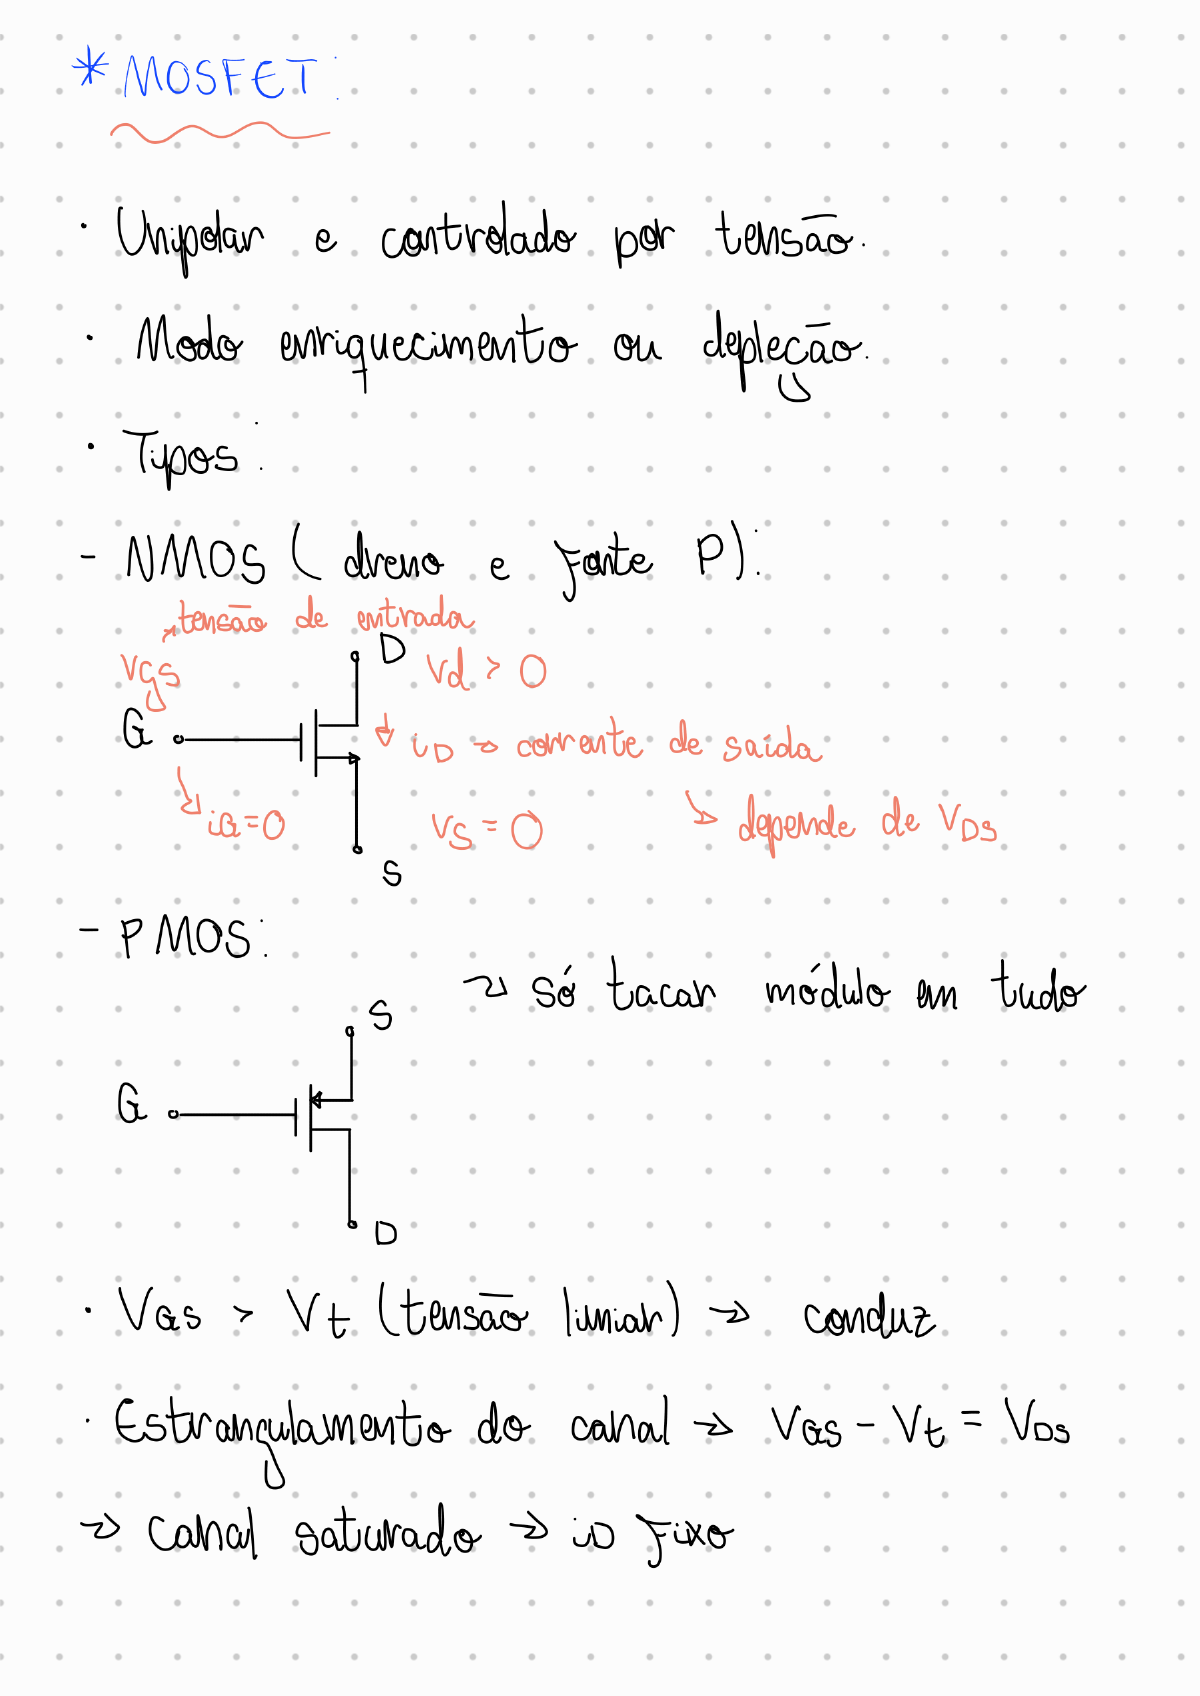 * MOSFET:
· Unipolar e controlado por tensão.
· Modo enriquecimento ou depleção.
· Tipos:
- NMOS ( dreno e fonte P):
tensão de entrada
VGS
D
Vd > 0
G
iD → corrente de saída
iG = 0
VS = 0
↳ depende de VDS
S
- PMOS:
→ só tacar módulo em tudo
S
G
D
· VGS > Vt (tensão limiar) → conduz
· Estrangulamento do canal → VGS - Vt = VDS
→ canal saturado → iD fixo